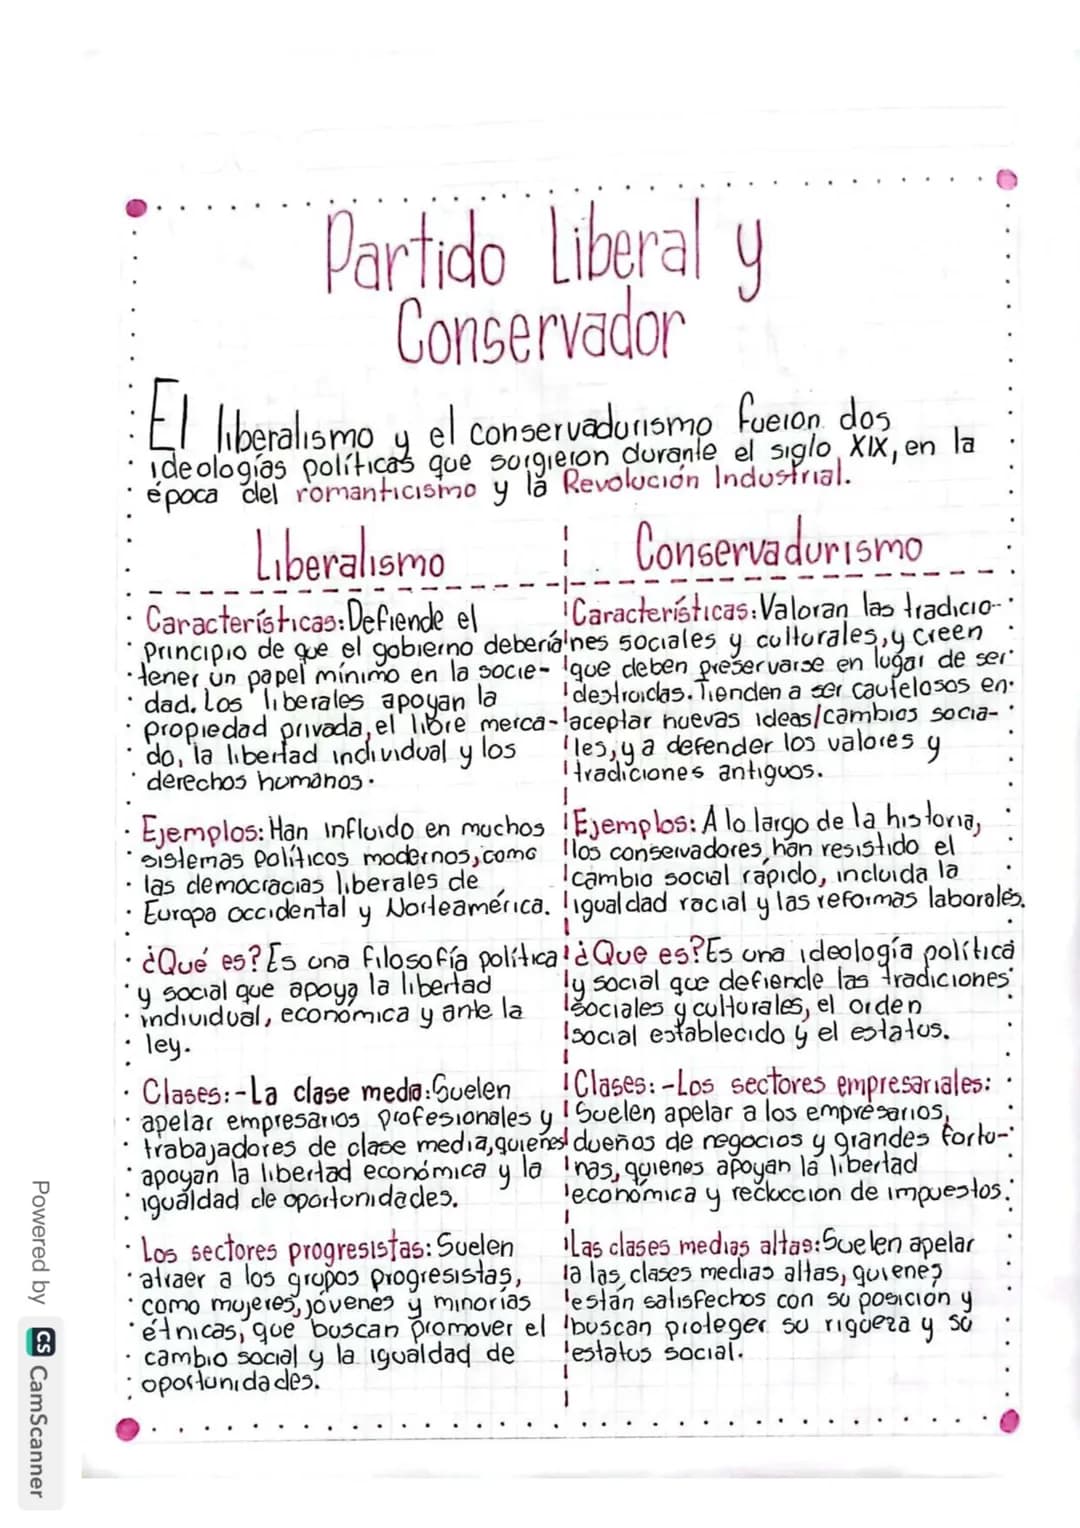 Partido Liberal y
Conservador
El liberalismo y el conservadurismo fueron dos
ideologías políticas que surgieron durante el siglo XIX, en la
época del romanticismo y la Revolución Industrial.
Liberalismo
Características: Defiende el
principio de que el gobierno debería
tener un papel mínimo en la socie-
dad. Los liberales apoyan la
propiedad privada, el libre merca-
do, la libertad individual y los
derechos humanos.
Ejemplos: Han influido en muchos
sistemas políticos modernos, como
las democracias liberales de
Europa occidental y Norteamérica.
¿Qué es? Es una filosofía política
y social que apoya la libertad
individual, económica y ante la
ley.
Clases: - La clase media: Suelen
apelar empresarios profesionales y
trabajadores de clase media, quienes
apoyan la libertad económica y la
igualdad de oportunidades.
Los sectores progresistas: Suelen
atraer a los grupos progresistas,
como mujeres, jóvenes y minorías
étnicas, que buscan promover el
cambio social y la igualdad de
oportunidades.
Conservadurismo
Características: Valoran las tradicio-
nes sociales y culturales, y creen
que deben preservarse en lugar de ser
destruidas. Tienden a ser cautelosos en
aceptar nuevas ideas/cambios socia-
les, y a defender los valores y
tradiciones antiguos.
Ejemplos: A lo largo de la historia,
los conservadores han resistido el
cambio social rápido, incluida la
igualdad racial y las reformas laborales.
¿Que es? Es una ideología política
y social que defiende las tradiciones
sociales y culturales, el orden
social establecido y el estatus.
Clases: - Los sectores empresariales:
Suelen apelar a los empresarios,
dueños de negocios y grandes fortu-
nas, quienes apoyan la libertad
económica y reduccion de impuestos.
Las clases medias altas: Suelen apelar
a las clases medias altas, quienes
están satisfechos con su posición y
buscan proteger su riqueza y su
estatus social.
Powered by CS CamScanner